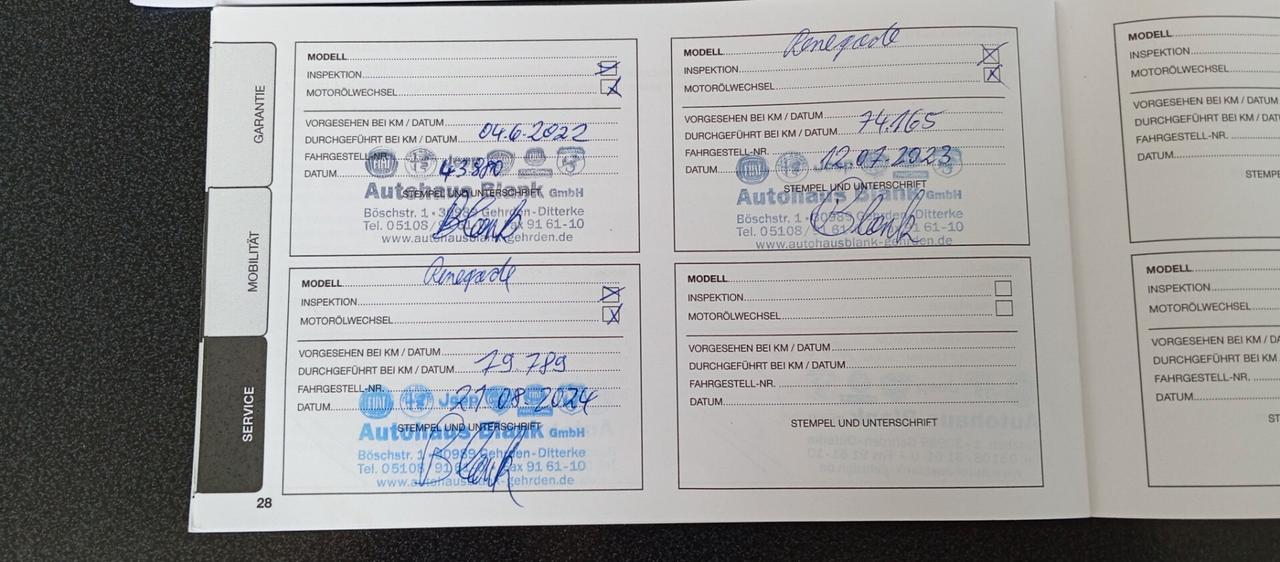 GARANTIE
MOBILITÄT
SERVICE
MODELL
INSPEKTION
MOTORÖLWECHSEL
VORGESEHEN BEI KM / DATUM
DURCHGEFÜHRT BEI KM / DATUM 04.6.2022
FAHRGESTELL-NR.
DATUM
STEMPEL UND UNTERSCHRIFT
FIAT Jeep
Autohaus Blank GmbH
Böschstr. 1 • 30989 Gehrden-Ditterke
Tel. 05108/ 91 61-10
www.autohausblank-gehrden.de
Blank
MODELL Renegade
INSPEKTION
MOTORÖLWECHSEL
VORGESEHEN BEI KM / DATUM
DURCHGEFÜHRT BEI KM / DATUM 74.165
FAHRGESTELL-NR.
DATUM 12.07.2023
STEMPEL UND UNTERSCHRIFT
FIAT Jeep
Autohaus Blank GmbH
Böschstr. 1 • 30989 Gehrden-Ditterke
Tel. 05108/ 91 61-10
www.autohausblank-gehrden.de
Blank
MODELL Renegade
INSPEKTION
MOTORÖLWECHSEL
VORGESEHEN BEI KM / DATUM
DURCHGEFÜHRT BEI KM / DATUM 79789
FAHRGESTELL-NR.
DATUM 21 08 2024
STEMPEL UND UNTERSCHRIFT
FIAT Jeep
Autohaus Blank GmbH
Böschstr. 1 • 30989 Gehrden-Ditterke
Tel. 05108/ 91 61-10
www.autohausblank-gehrden.de
Blank
MODELL
INSPEKTION
MOTORÖLWECHSEL
VORGESEHEN BEI KM / DATUM
DURCHGEFÜHRT BEI KM / DATUM
FAHRGESTELL-NR.
DATUM
STEMPEL UND UNTERSCHRIFT
28
MODELL
INSPEKTION
MOTORÖLWECHSEL
VORGESEHEN BEI KM / DATUM
FAHRGESTELL-NR.
DATUM
MODELL
INSPEKTION
MOTORÖLWECHSEL
VORGESEHEN BEI KM
DURCHGEFÜHRT BEI
FAHRGESTELL-NR.
DATUM